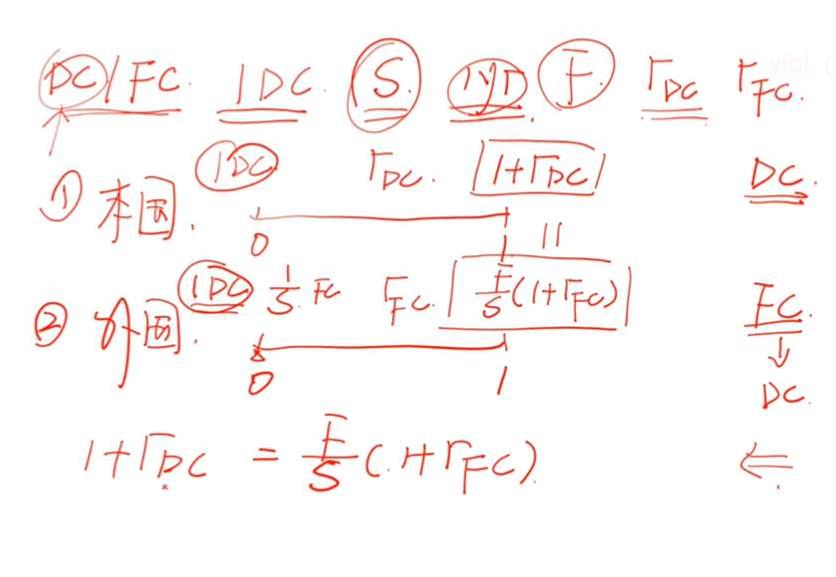 DC/FC 1DC S 1yr F rDC rFC.
① 本国. 1DC rDC. 1+rDC DC.
0 1 ||
② 外国. 1DC 1/S FC rFC. F/S(1+rFC) FC.
↓
0 1 DC.
1+rDC = F/S(1+rFC) ⇐